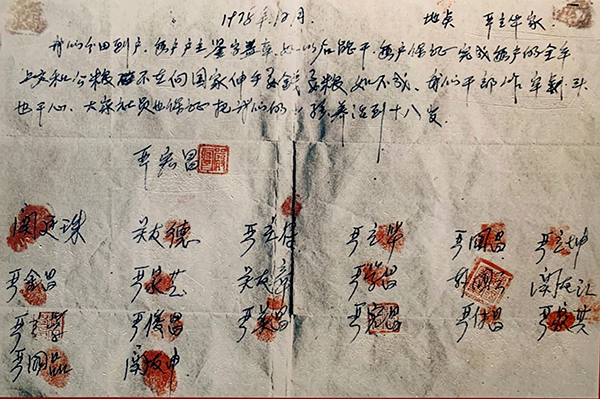 1978年12月 地点 严立华家
我们分田到户,每户户主签字盖章,如以后能干,每户保证完成每户的全年
上交和公粮不在向国家伸手要钱要粮,如不成,我们干部作牢刹头
也干心,大家社员也保证把我们的小孩养活到十八岁。
严宏昌
关廷珠 关友德 严立符 严立华 严国昌 严立坤
严金昌 严家芝 关友章 严学昌 韩国云 关友江
严立学 严俊昌 严美昌 严宏昌 严付昌 严家其
严国品 关友申